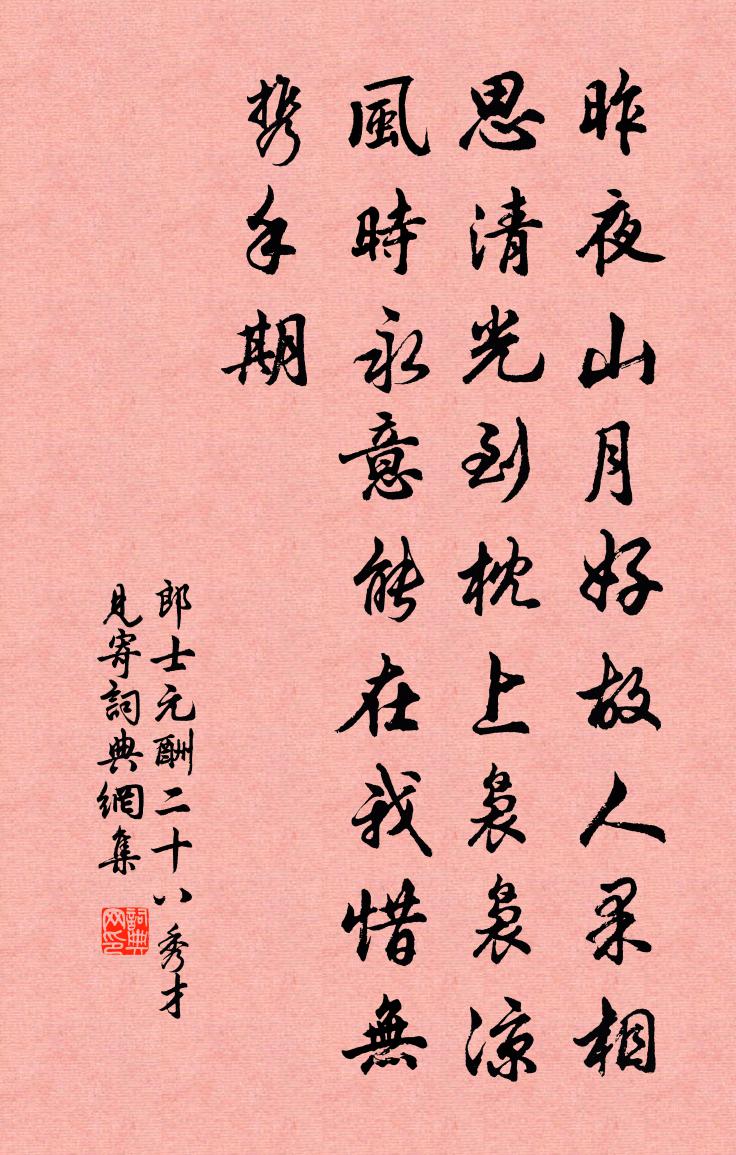 昨夜山月好故人果相
思清光到枕上裊裊涼
風時永意能在我惜無
携手期
郎士元酬二十八秀才
見寄詞典網集
詞典网印